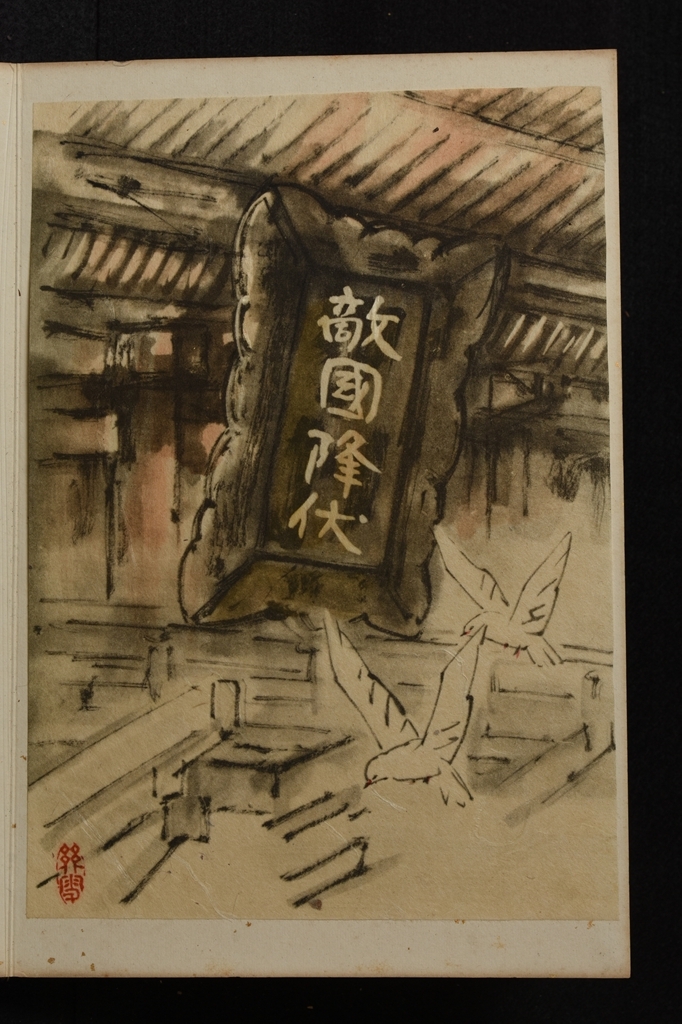 敵國降伏